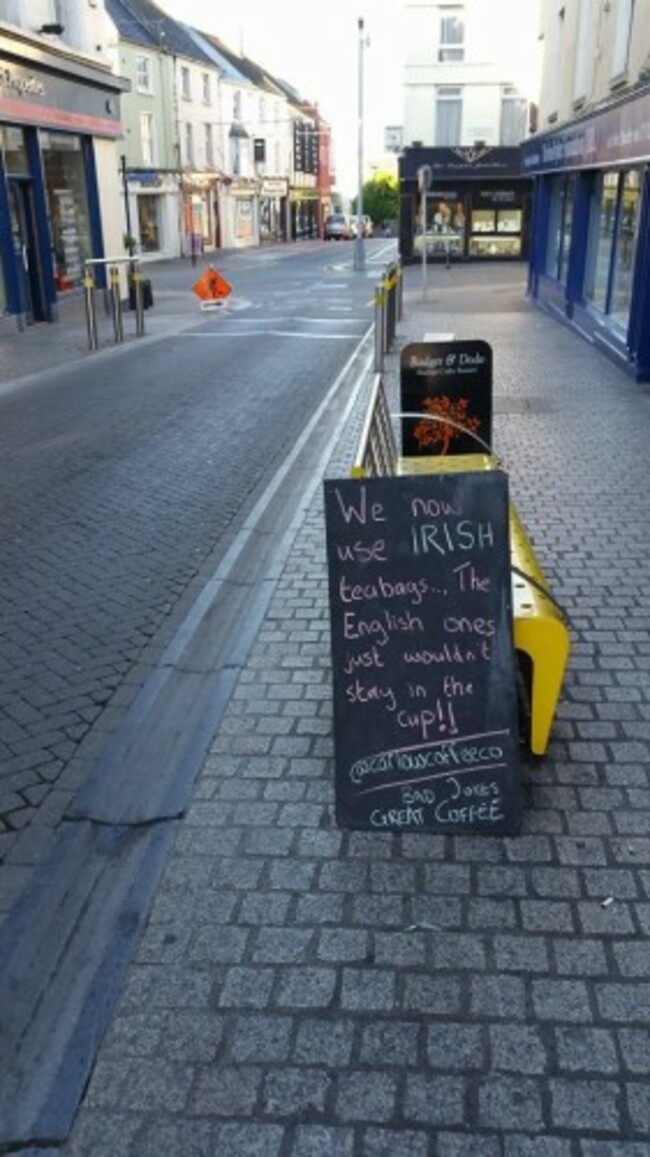 Badger & Dodo
We now
use IRISH
teabags... The
English ones
just wouldn't
stay in the
cup!!
@carlowcoffeeco
BAD JOKES
GREAT COFFEE